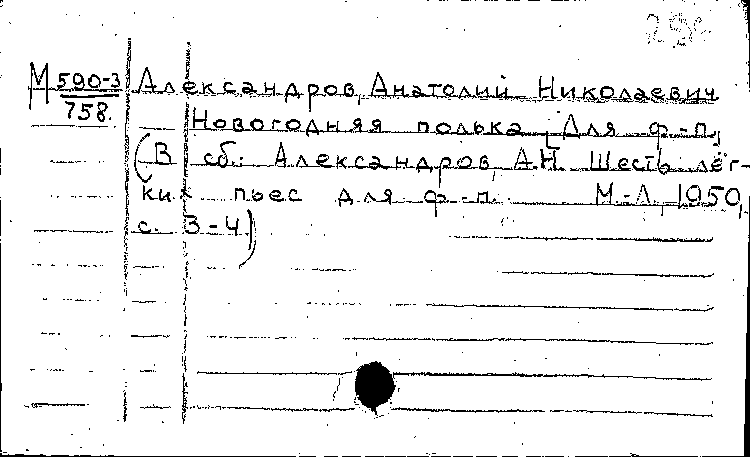 М 590-3 Александров, Анатолий Николаевич
758. Новогодняя полька [Для ф.-п.,
(В сб.: Александров, А.Н. Шесть лёг-
ких пьес для ф.-п. М.-Л., 1950,
с. 3-4.)